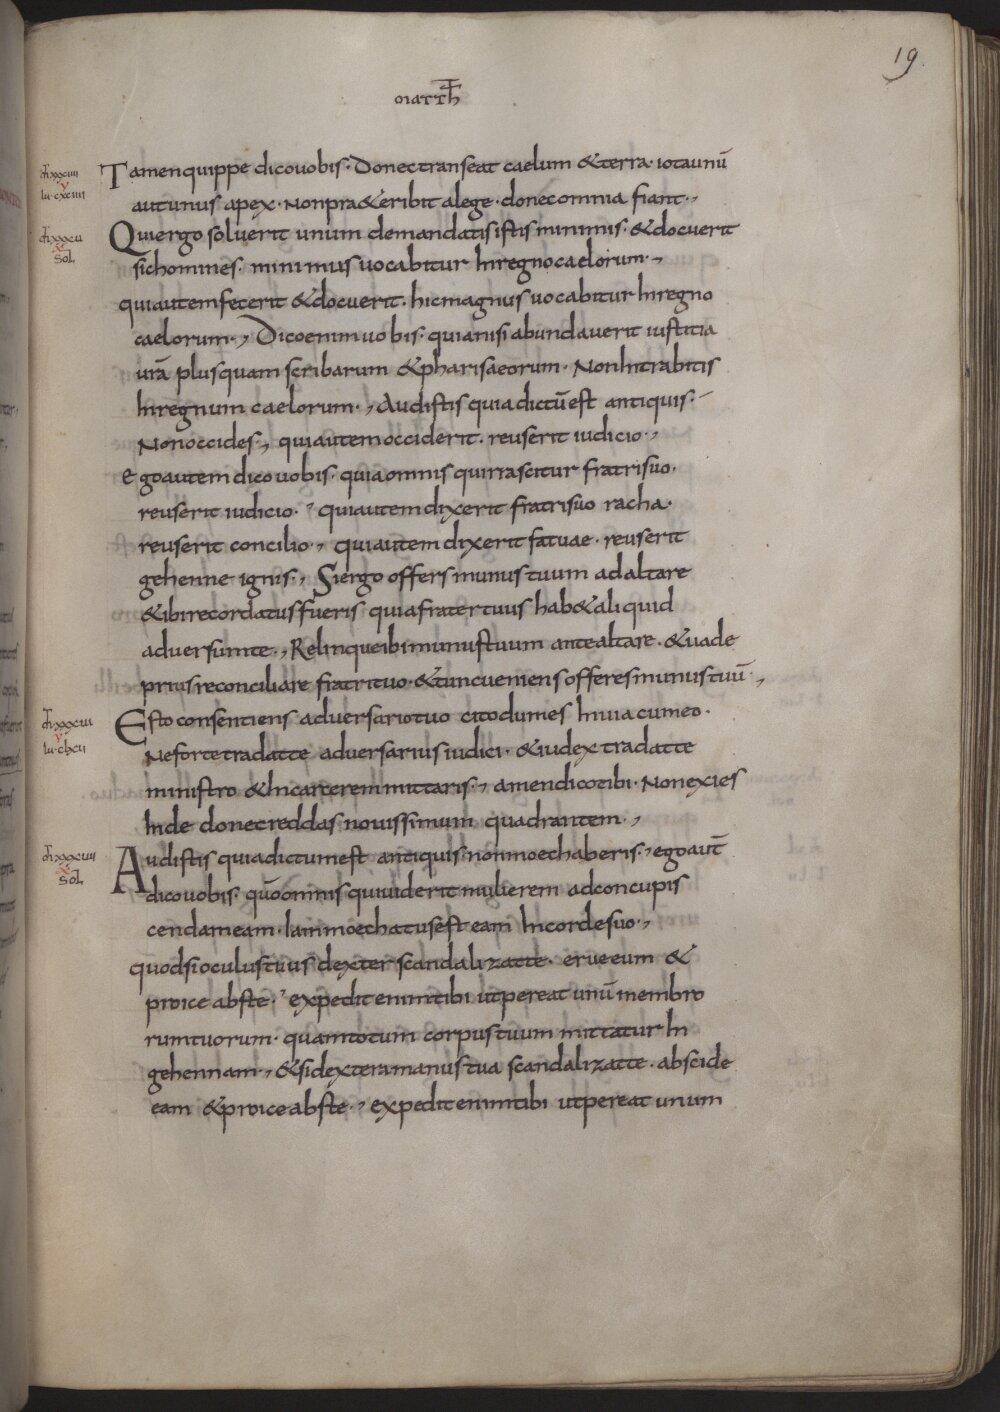 19
MATTH̄
Tamen quippe dico uobis · Donec transeat caelum & terra · iota unū
aut unus apex · Non pra&eribit a lege · donec omnia fiant ·,
Qui ergo soluerit unum de mandatis istis minimis · & docuerit
sic homines · minimus uocabitur In regno caelorum ·,
qui autem fecerit & docuerit · hic magnus uocabitur In regno
caelorum ·, Dico enim uobis · quia nisi abundauerit iustitia
urā plus quam scribarum & pharisaeorum · Non Intrabitis
In regnum caelorum ·, Audistis quia dictū est antiquis ·
Non occides ·, qui autem occiderit · reus erit iudicio ·,
ego autem dico uobis · quia omnis qui irascitur fratri suo ·
reus erit iudicio ·, qui autem dixerit fratri suo racha ·
reus erit concilio ·, qui autem dixerit fatuae · reus erit
gehenne ignis ·, Si ergo offers munus tuum ad altare
& ibi recordatus fueris quia frater tuus hab& aliquid
aduersum te ·, Relinque ibi munus tuum ante altare · & uade
prius reconciliare fratri tuo · & tunc ueniens offeres munus tuū ·,
chxxxuii
lu·clxii
Esto consentiens aduersario tuo cito dum es In uia cum eo ·
Ne forte tradat te aduersarius iudici · & iudex tradat te
ministro & In carcerem mittaris ·, amen dico tibi · Non exies
Inde donec reddas nouissimum quadrantem ·,
sol
Audistis quia dictum est antiquis · non moechaberis ·, ego aut̄
dico uobis · quō omnis qui uiderit mulierem ad concupis
cendam eam · Iam moechatus est eam In corde suo ·,
quod si oculus tuus dexter scandalizat te · erue eum &
proice abs te ·, expedit enim tibi ut pereat unū membro
rum tuorum · quam totum corpus tuum mittatur In
gehennam ·, & si dextera manus tua scandalizat te · abscide
eam & proice abs te ·, expedit enim tibi ut pereat unum